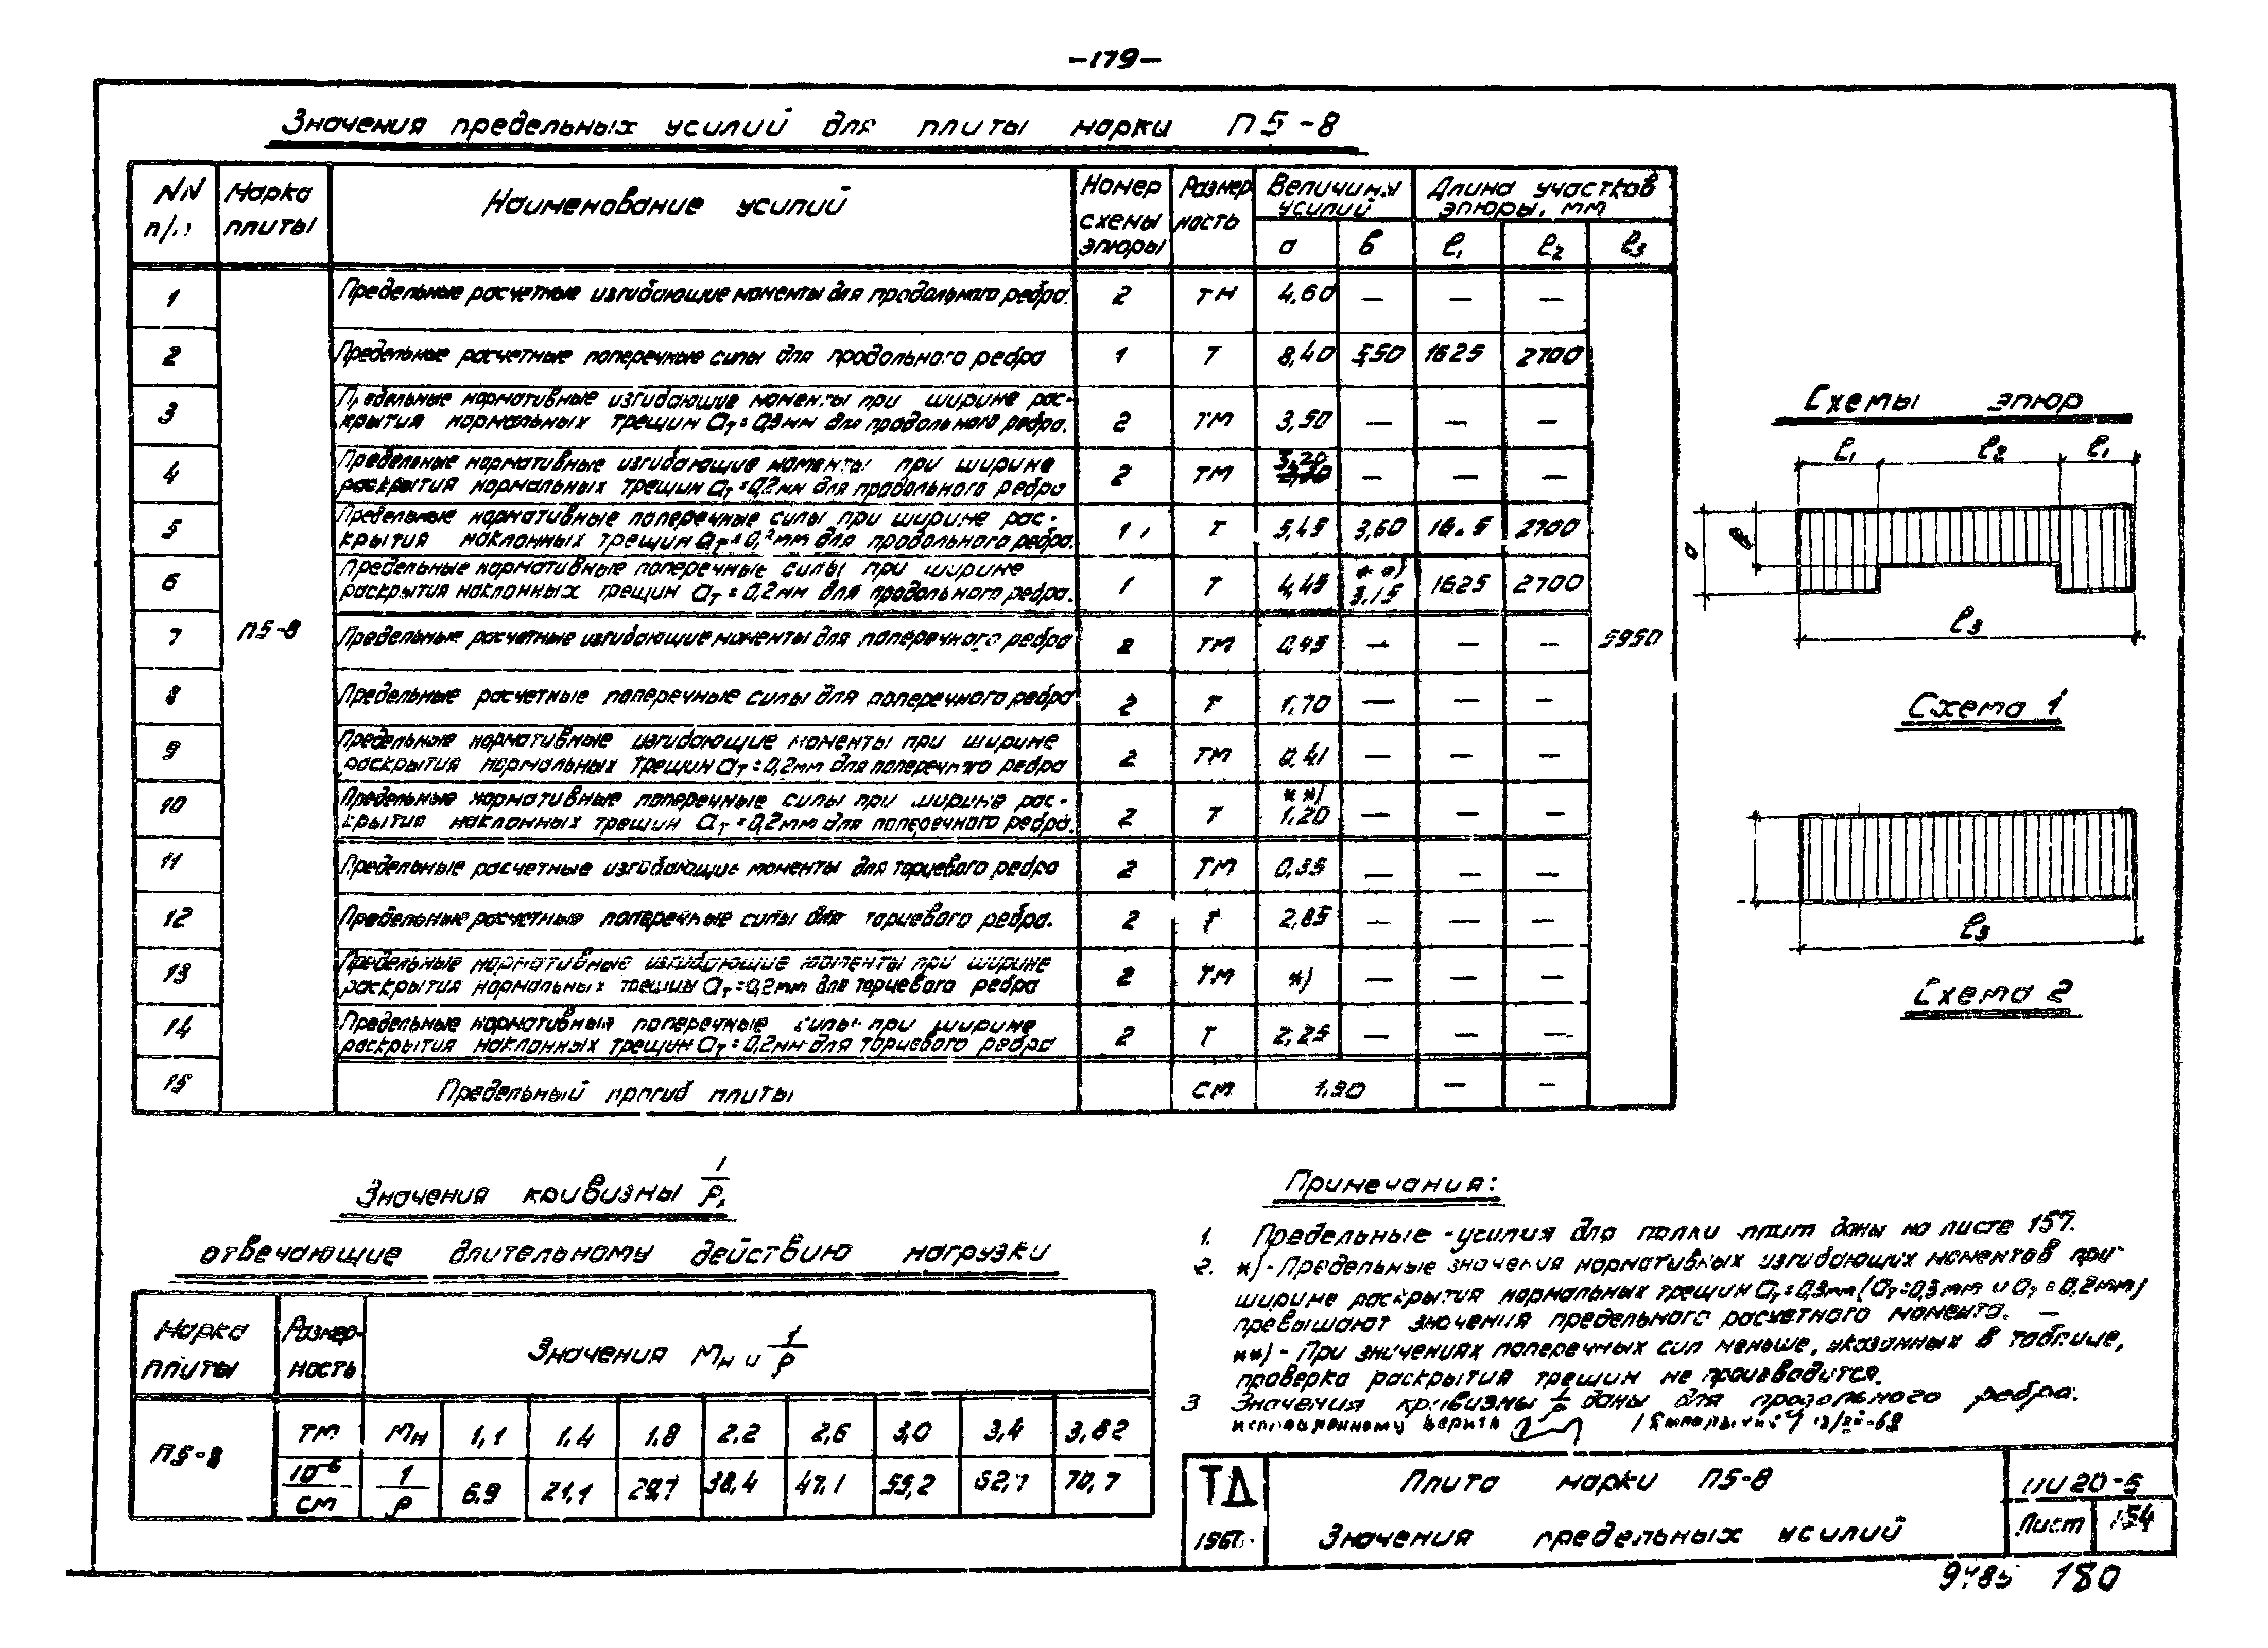 -179-
Значения предельных усилий для плиты марки П5-8
NN п/п Марка плиты Наименование усилий Номер схемы эпюры Размер ность Величины усилий Длина участков эпюры, мм
а б ℓ1 ℓ2 ℓ3
1 Предельные расчетные изгибающие моменты для продольного ребра. 2 тм 4,60 — — —
2 Предельные расчетные поперечные силы для продольного ребра 1 т 8,40 5,50 1625 2700
3 Предельные нормативные изгибающие моменты при ширине рас-
крытия нормальных трещин aт=0,3мм для продольного ребра. 2 тм 3,50 — — —
4 Предельные нормативные изгибающие моменты при ширине
раскрытия нормальных трещин aт=0,2мм для продольного ребра 2 тм 3,20 — — —
5 Предельные нормативные поперечные силы при ширине рас-
крытия наклонных трещин aт=0, мм для продольного ребра. 1 т 5,45 3,60 16.5 2700
6 Предельные нормативные поперечные силы при ширине
раскрытия наклонных трещин aт=0,2мм для продольного ребра. 1 т 4,45 **) 3,15 1625 2700
7 П5-8 Предельные расчетные изгибающие моменты для поперечного ребра 2 тм 0,45 — — — 5950
8 Предельные расчетные поперечные силы для поперечного ребра 2 т 1,70 — — —
9 Предельные нормативные изгибающие моменты при ширине
раскрытия нормальных трещин aт=0,2мм для поперечного ребра 2 тм 0,41 — — —
10 Предельные нормативные поперечные силы при ширине рас-
крытия наклонных трещин aт=0,2мм для поперечного ребра. 2 т **) 1,20 — — —
11 Предельные расчетные изгибающие моменты для торцевого ребра 2 тм 0,35 — — —
12 Предельные расчетные поперечные силы для торцевого ребра. 2 т 2,85 — — —
13 Предельные нормативные изгибающие моменты при ширине
раскрытия нормальных трещин aт=0,2мм для торцевого ребра 2 тм *) — — —
14 Предельные нормативные поперечные силы при ширине
раскрытия наклонных трещин aт=0,2мм для торцевого ребра 2 т 2,25 — — —
15 Предельный прогиб плиты см 1,90 — —
Схемы эпюр
ℓ1 ℓ2 ℓ1
а б
ℓ3
Схема 1
ℓ3
Схема 2
Значения кривизны 1/ρ,
отвечающие длительному действию нагрузки
Марка плиты Размер- ность Значения Mн и 1/ρ
П5-8 тм Mн 1,1 1.4 1.8 2.2 2,6 3,0 3,4 3,82
10⁻⁶/см 1/ρ 6.9 21,1 29,7 38,4 47.1 55,2 62,7 70,7
Примечания:
1. Предельные усилия для полки плит даны на листе 157.
2. *)-Предельные значения нормативных изгибающих моментов при
ширине раскрытия нормальных трещин aт=0,3мм (aт=0,3мм и aт=0.2мм)
превышают значения предельного расчетного момента. —
**)- При значениях поперечных сил меньше, указанных в таблице,
проверка раскрытия трещин не производится.
3 Значения кривизны 1/ρ даны для продольного ребра.
исправленному верить
ТД
Плита марки П5-8
ИИ 20-5
Значения предельных усилий
Лист 154
9485 180